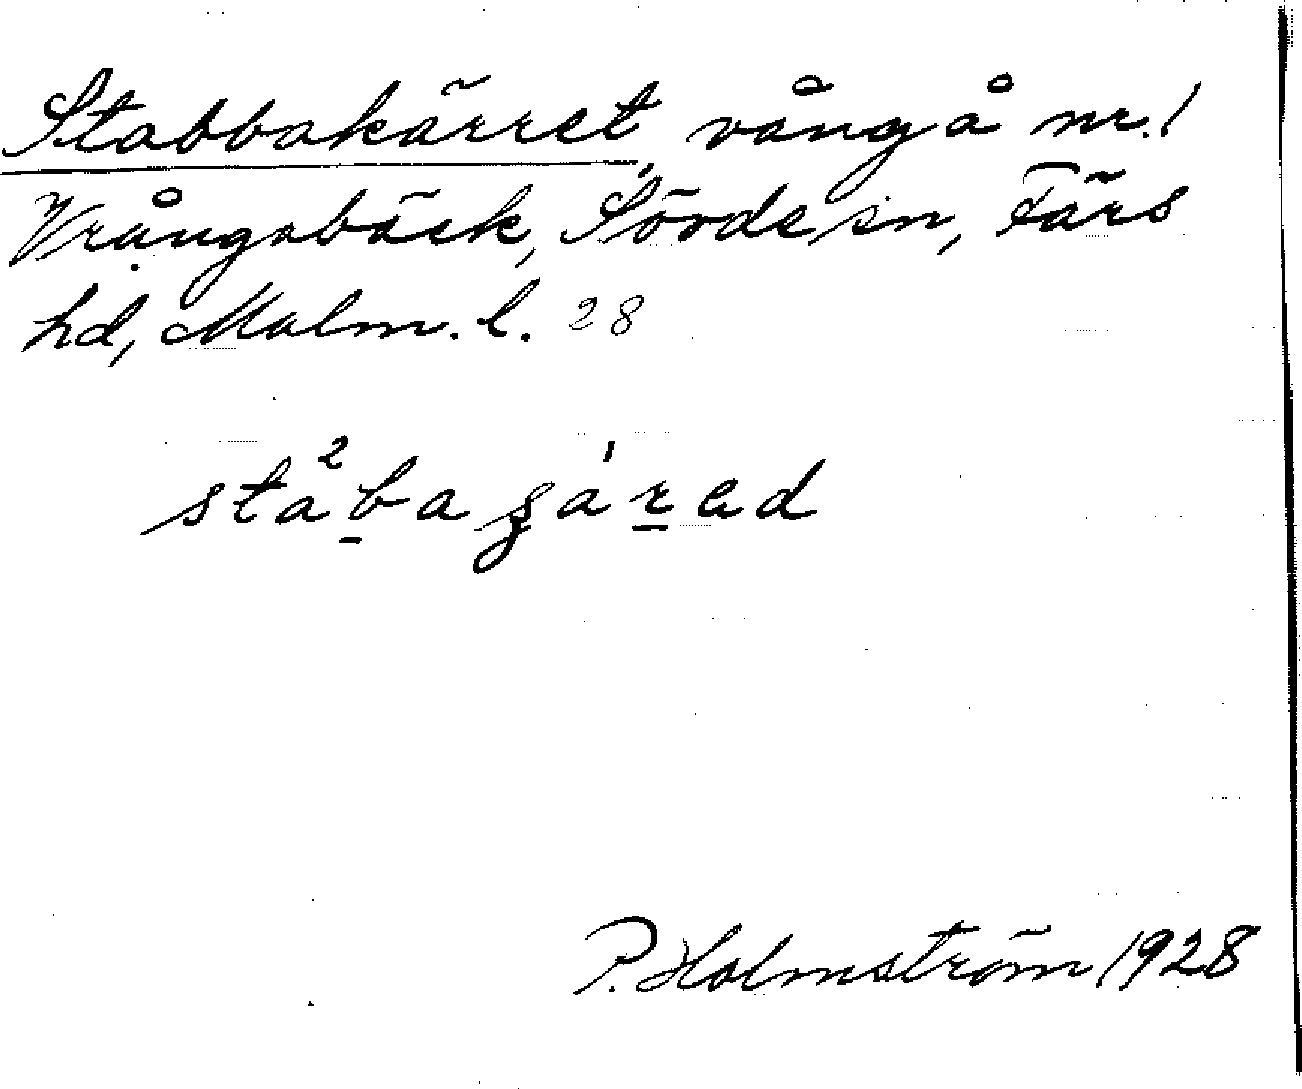 Stabbakärret, vång å nr. 1
Vrångabäck, Sövde sn, Färs
hd, Malm. l. 28
stabaʒáred
P. Holmström 1928